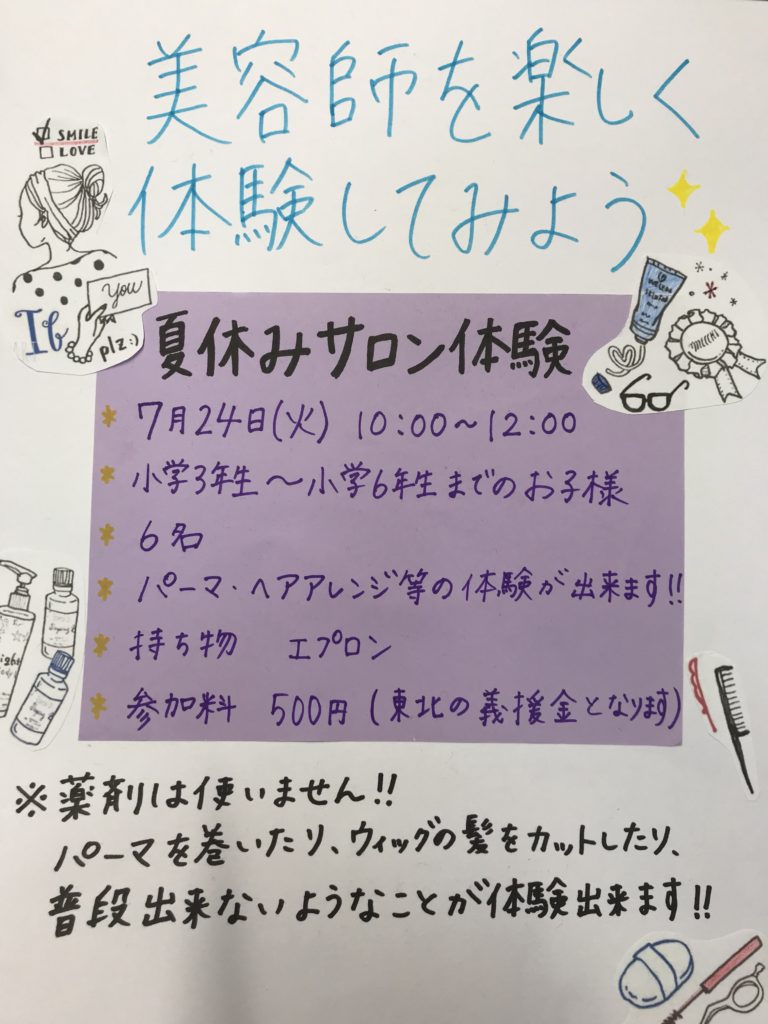 美容師を楽しく
体験してみよう
SMILE
LOVE
you
plz:)
夏休みサロン体験
* 7月24日(火) 10:00～12:00
* 小学3年生～小学6年生までのお子様
* 6名
* パーマ・ヘアアレンジ等の体験が出来ます!!
* 持ち物 エプロン
* 参加料 500円 (東北の義援金となります)
※薬剤は使いません!!
パーマを巻いたり、ウィッグの髪をカットしたり、
普段出来ないようなことが体験出来ます!!